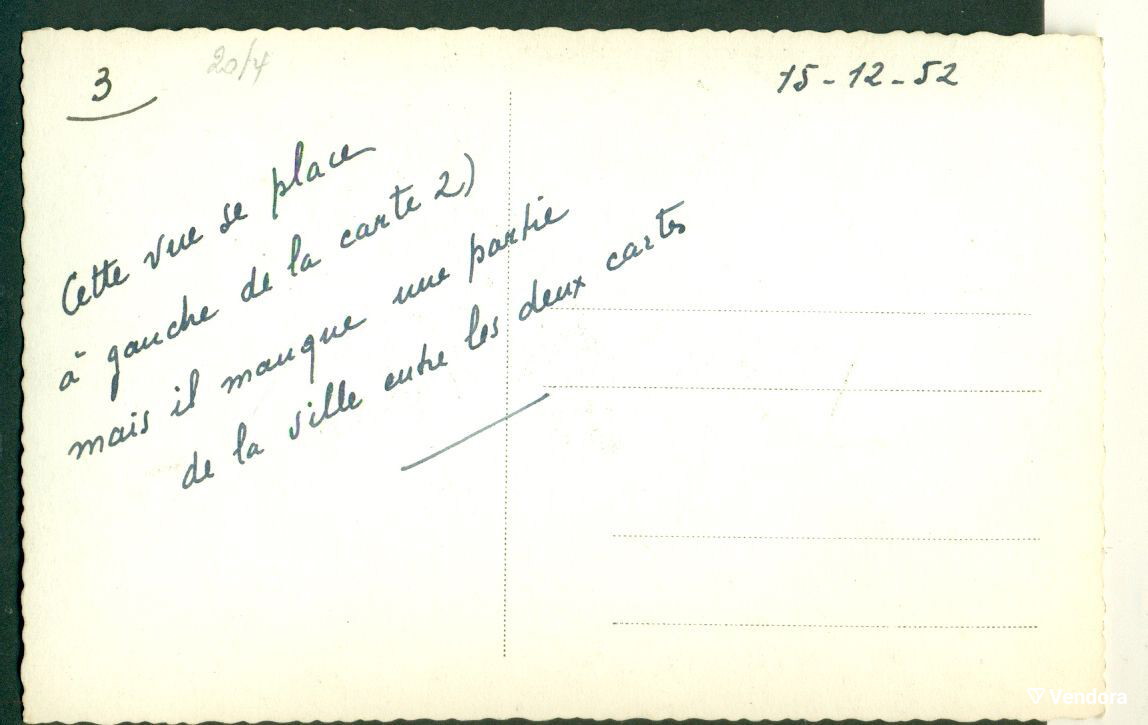 3
20/4
15-12-52
Cette vue se place
à gauche de la carte 2)
mais il manque une partie
de la ville entre les deux cartes
Vendora